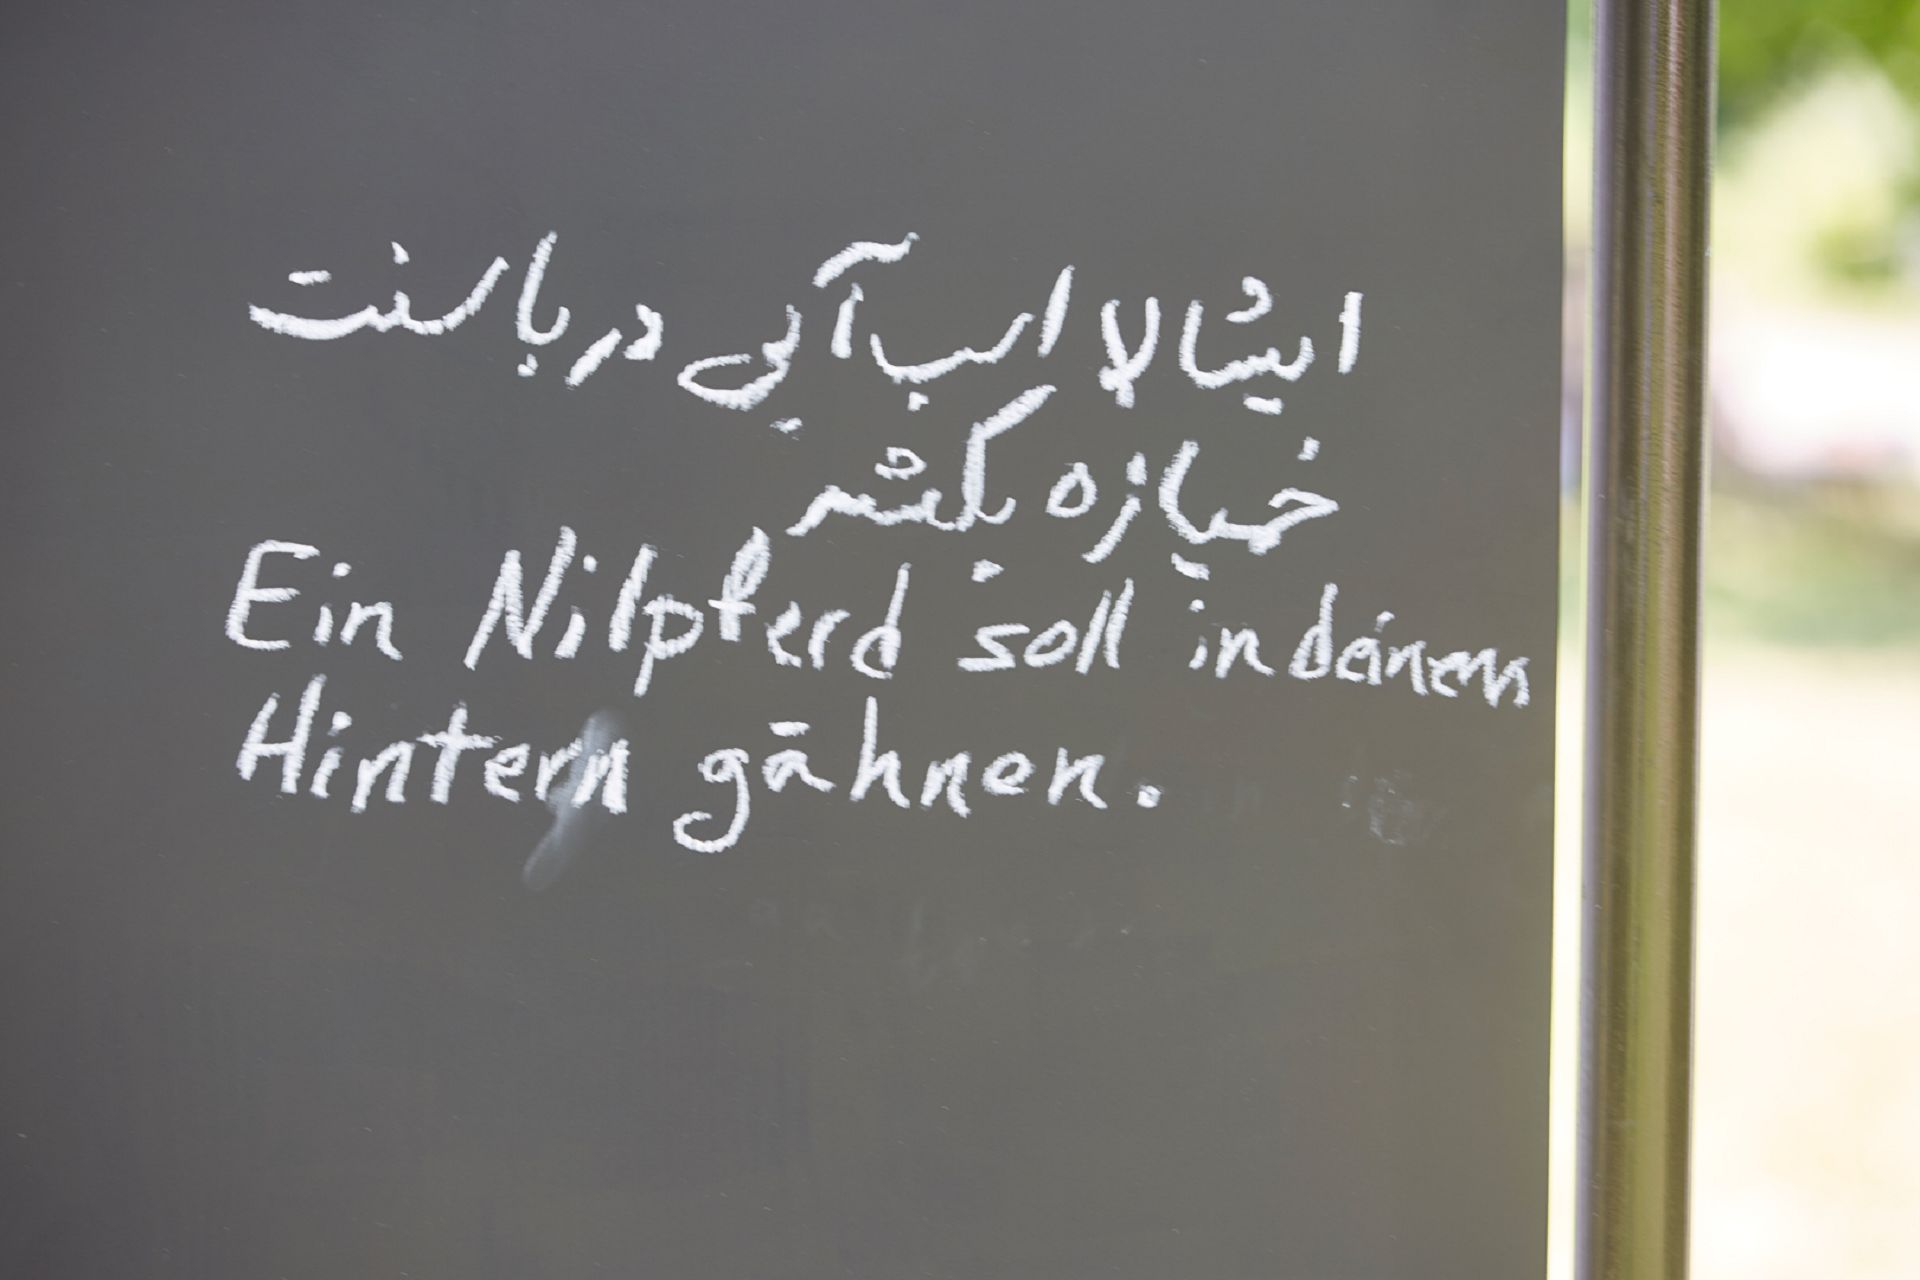 ایشالا اسب آبی در باسنت
خمیازه بکشد
Ein Nilpferd soll in deinem
Hintern gähnen.